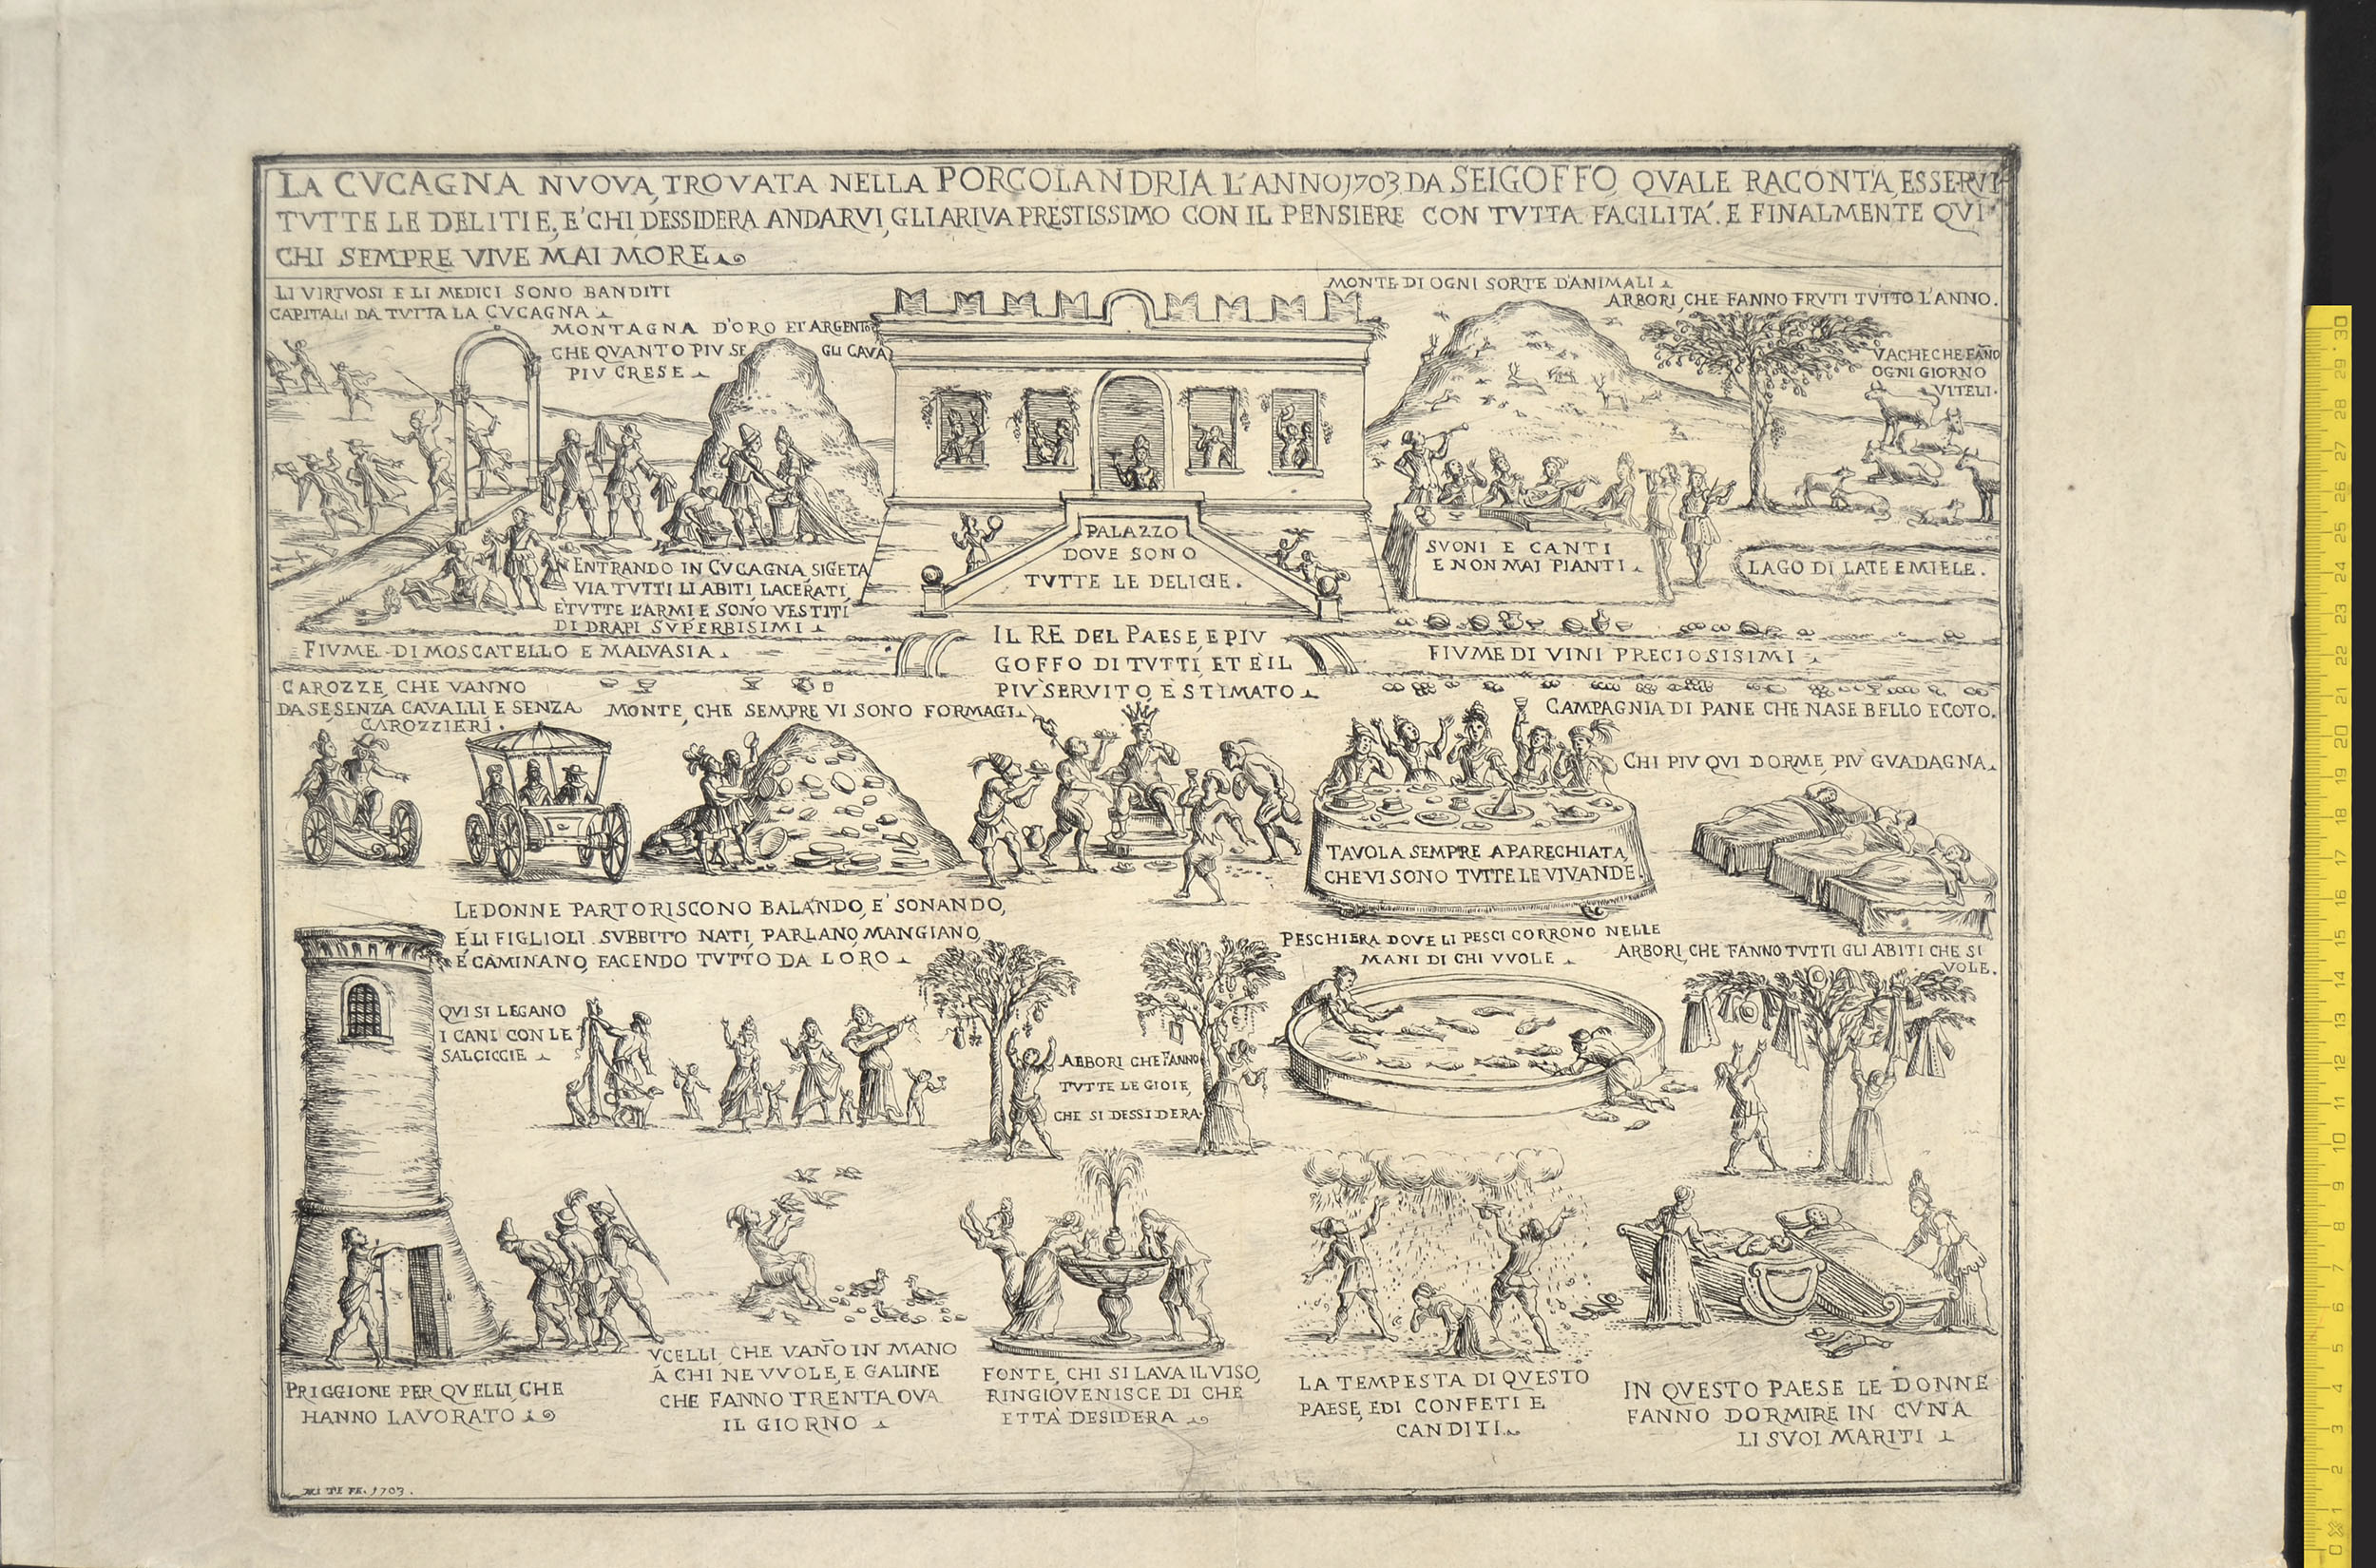 LA CVCAGNA NVOVA, TROVATA NELLA PORCOLANDRIA L'ANNO 1703, DA SEIGOFFO, QVALE RACONTA, ESSERVI
TVTTE LE DELITIE, E' CHI, DESSIDERA ANDARVI, GLI ARIVA PRESTISSIMO CON IL PENSIERE CON TVTTA FACILITA'. E FINALMENTE QVI
CHI SEMPRE VIVE MAI MORE
LI VIRTVOSI E LI MEDICI SONO BANDITI
CAPITALI DA TVTTA LA CVCAGNA
MONTAGNA D'ORO ET ARGENTO
CHE QVANTO PIV SE GLI CAVA
PIV CRESE
MONTE DI OGNI SORTE D'ANIMALI
ARBORI, CHE FANNO FRVTI TVTTO L'ANNO.
VACHE CHE FAÑO
OGNI GIORNO
VITELI.
PALAZZO
DOVE SONO
TVTTE LE DELICIE.
SVONI E CANTI
E NON MAI PIANTI
LAGO DI LATE E MIELE.
ENTRANDO IN CVCAGNA, SI GETA
VIA TVTTI LI ABITI, LACERATI,
E TVTTE L'ARMI E SONO VESTITI
DI DRAPI SVPERBISIMI
FIVME DI MOSCATELLO E MALVASIA
IL RE DEL PAESE, E PIV
GOFFO DI TVTTI, ET E IL
PIV SERVITO, E STIMATO
FIVME DI VINI PRECIOSISIMI
CAROZZE, CHE VANNO
DA SE, SENZA CAVALLI E SENZA
CAROZZIERI.
MONTE, CHE SEMPRE VI SONO FORMAGI
CAMPAGNIA DI PANE CHE NASE BELLO E COTO.
CHI PIV QVI DORME, PIV GVADAGNA
TAVOLA SEMPRE APARECHIATA,
CHE VI SONO TVTTE LE VIVANDE
LE DONNE PARTORISCONO BALANDO, E' SONANDO,
E LI FIGLIOLI SVBBITO NATI, PARLANO, MANGIANO,
E CAMINANO, FACENDO TVTTO DA LORO
PESCHIERA DOVE LI PESCI CORRONO NELLE
MANI DI CHI VVOLE
ARBORI, CHE FANNO TVTTI GLI ABITI CHE SI
VOLE.
QVI SI LEGANO
I CANI CON LE
SALCICCIE
ARBORI CHE FANNO
TVTTE LE GIOIE,
CHE SI DESSIDERA.
PRIGGIONE PER QVELLI, CHE
HANNO LAVORATO
VCELLI, CHE VAÑO IN MANO
A CHI NE VVOLE, E GALINE
CHE FANNO TRENTA OVA
IL GIORNO
FONTE, CHI SI LAVA IL VISO,
RINGIOVENISCE DI CHE
ETTA DESIDERA
LA TEMPESTA DI QVESTO
PAESE, E DI CONFETI E
CANDITI
IN QVESTO PAESE LE DONNE
FANNO DORMIRE IN CVNA
LI SVOI MARITI
1703.
0 1 2 3 4 5 6 7 8 9 10 11 12 13 14 15 16 17 18 19 20 21 22 23 24 25 26 27 28 29 30